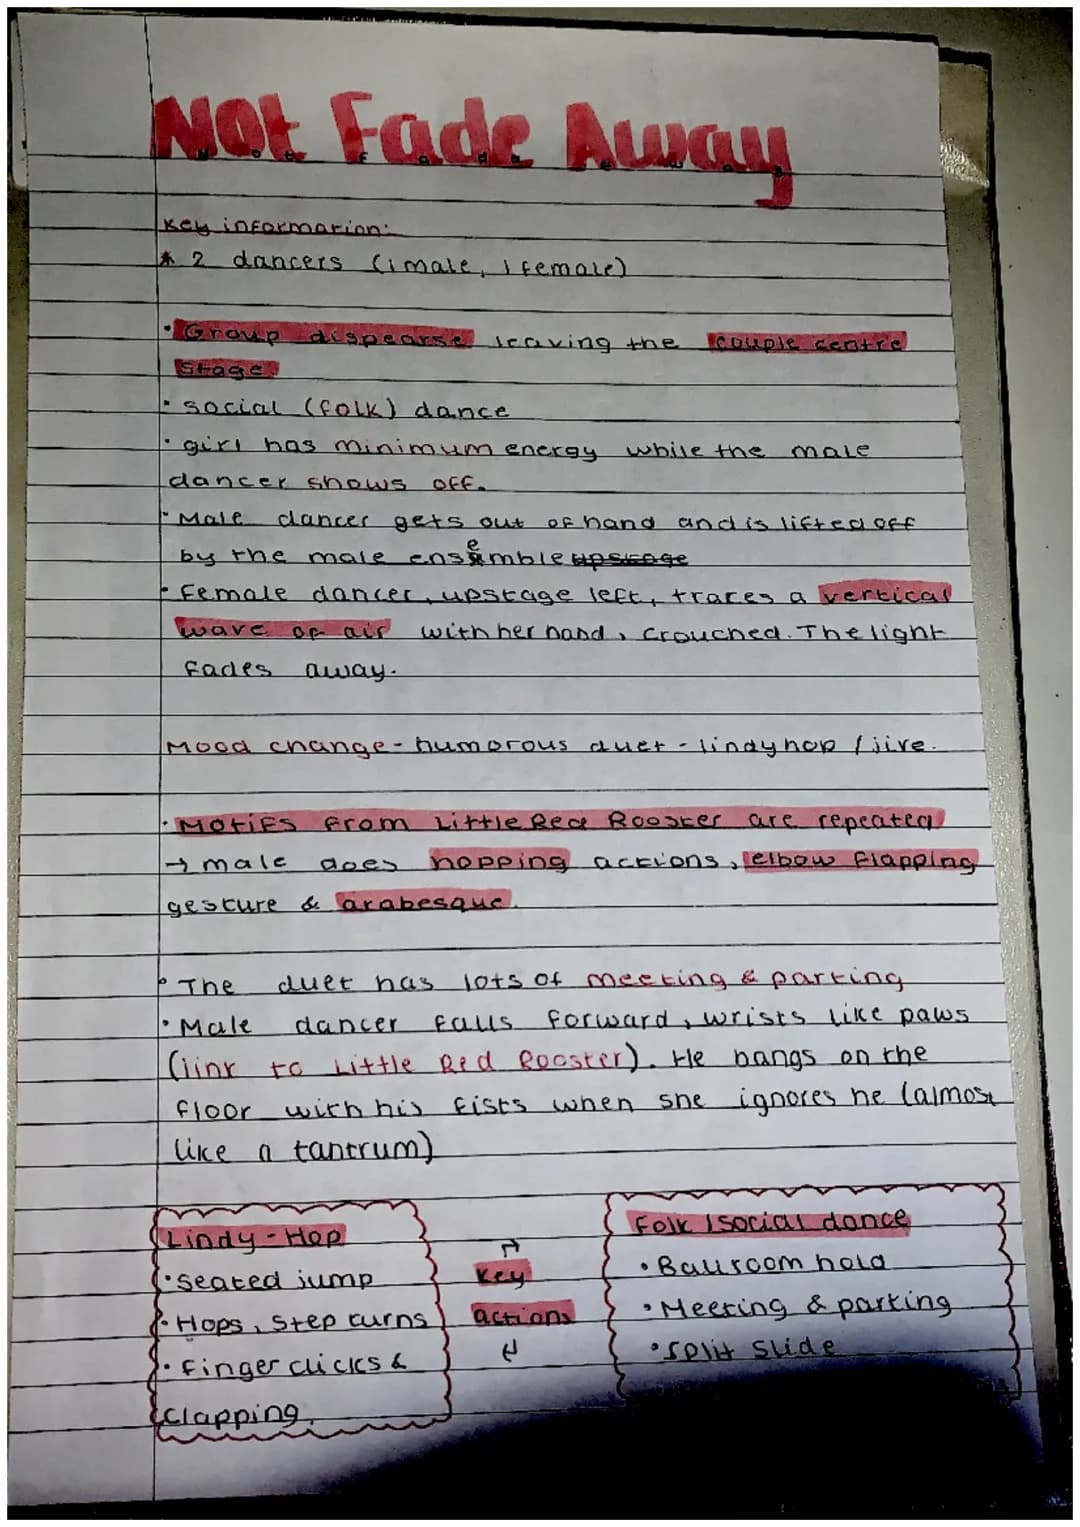 Not Fade Away
Not fade away
Key information:
* 2 dancers (1 male, 1 female)
• Group dispearse leaving the couple centre
stage.
• social (folk) dance
• girl has minimum energy while the male
dancer shows off.
• Male dancer gets out of hand and is lifted off
by the male ensemble upstage
• Female dancer, upstage left, traces a vertical
wave of air with her hand, crouched. The light
fades away.
Mood change - humorous duet - lindyhop / jive.
• Motifs from Little Red Rooster are repeated
→ male does hopping actions, elbow flapping
gesture & arabesque.
• The duet has lots of meeting & parting
• Male dancer falls forward, wrists like paws
(link to Little Red Rooster). He bangs on the
floor with his fists when she ignores he (almost
like a tantrum)
Lindy-Hop
• Seated jump
• Hops, step turns
• Finger clicks &
clapping.
Key
actions
Folk / social dance
• Ballroom hold
• Meeting & parting
• Split slide